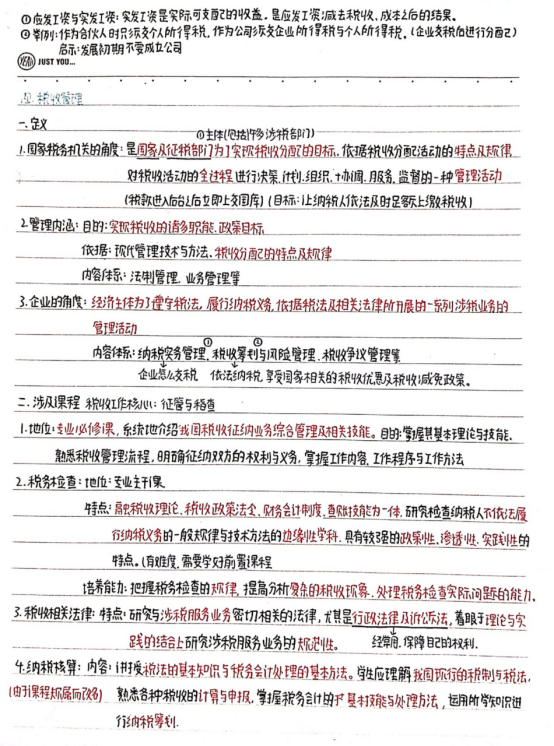 ①应发工资与实发工资:实发工资是实际可支配的收益,是应发工资减去税收、成本之后的结果。
②举例:作为合伙人时只须交个人所得税,作为公司须交企业所得税与个人所得税。(企业交税后进行分配)
启示:发展初期不要成立公司
YEAH JUST YOU...
四、税收管理
一、定义
①主体(包括许多涉税部门)
1.国家税务机关的角度:是国家及征税部门为了实现税收分配的目标,依据税收分配活动的特点及规律
对税收活动的全过程进行决策、计划、组织、协调、服务、监督的一种管理活动
(税款进入后以后立即上交国库)(目标:让纳税人依法及时足额上缴税收)
2.管理内涵:目的:实现税收的诸多职能、政策目标
依据:现代管理技术与方法、税收分配的特点及规律
内容体系:法制管理、业务管理等
3.企业的角度:经济主体为了遵守税法,履行纳税义务,依据税法及相关法律所开展的一系列涉税业务的
管理活动
① ②
内容体系:纳税实务管理、税收筹划与风险管理、税收争议管理等
企业怎么交税 依法纳税,享受国家相关的税收优惠及税收减免政策。
二、涉及课程 税收工作核心:征管与稽查
1.地位:专业必修课,系统地介绍我国税收征纳业务综合管理及相关技能。目的:掌握其基本理论与技能、
熟悉税收管理流程,明确征纳双方的权利与义务,掌握工作内容、工作程序与工作方法
2.税务检查:地位:专业主干课
特点:融税收理论、税收政策法令、财务会计制度、查账技能为一体,研究检查纳税人不依法履
行纳税义务的一般规律与技术方法的边缘性学科,具有较强的政策性、渗透性、实践性的
特点。(有难度,需要学好前置课程
培养能力:把握税务检查的规律,提高分析复杂的税收现象、处理税务检查实际问题的能力。
3.税收相关法律:特点:研究与涉税服务业务密切相关的法律,尤其是行政法律及诉讼法,着眼于理论与实
践的结合上研究涉税服务业务的规范性。 经常用,保障自己的权利.
4.纳税核算:内容:讲授税法的基本知识与税务会计处理的基本方法。学生应理解我国现行的税制与税法,
(由于课程归属而改名) 熟悉各种税收的计算与申报,掌握税务会计的基本技能与处理方法,运用所学知识进
行纳税筹划.